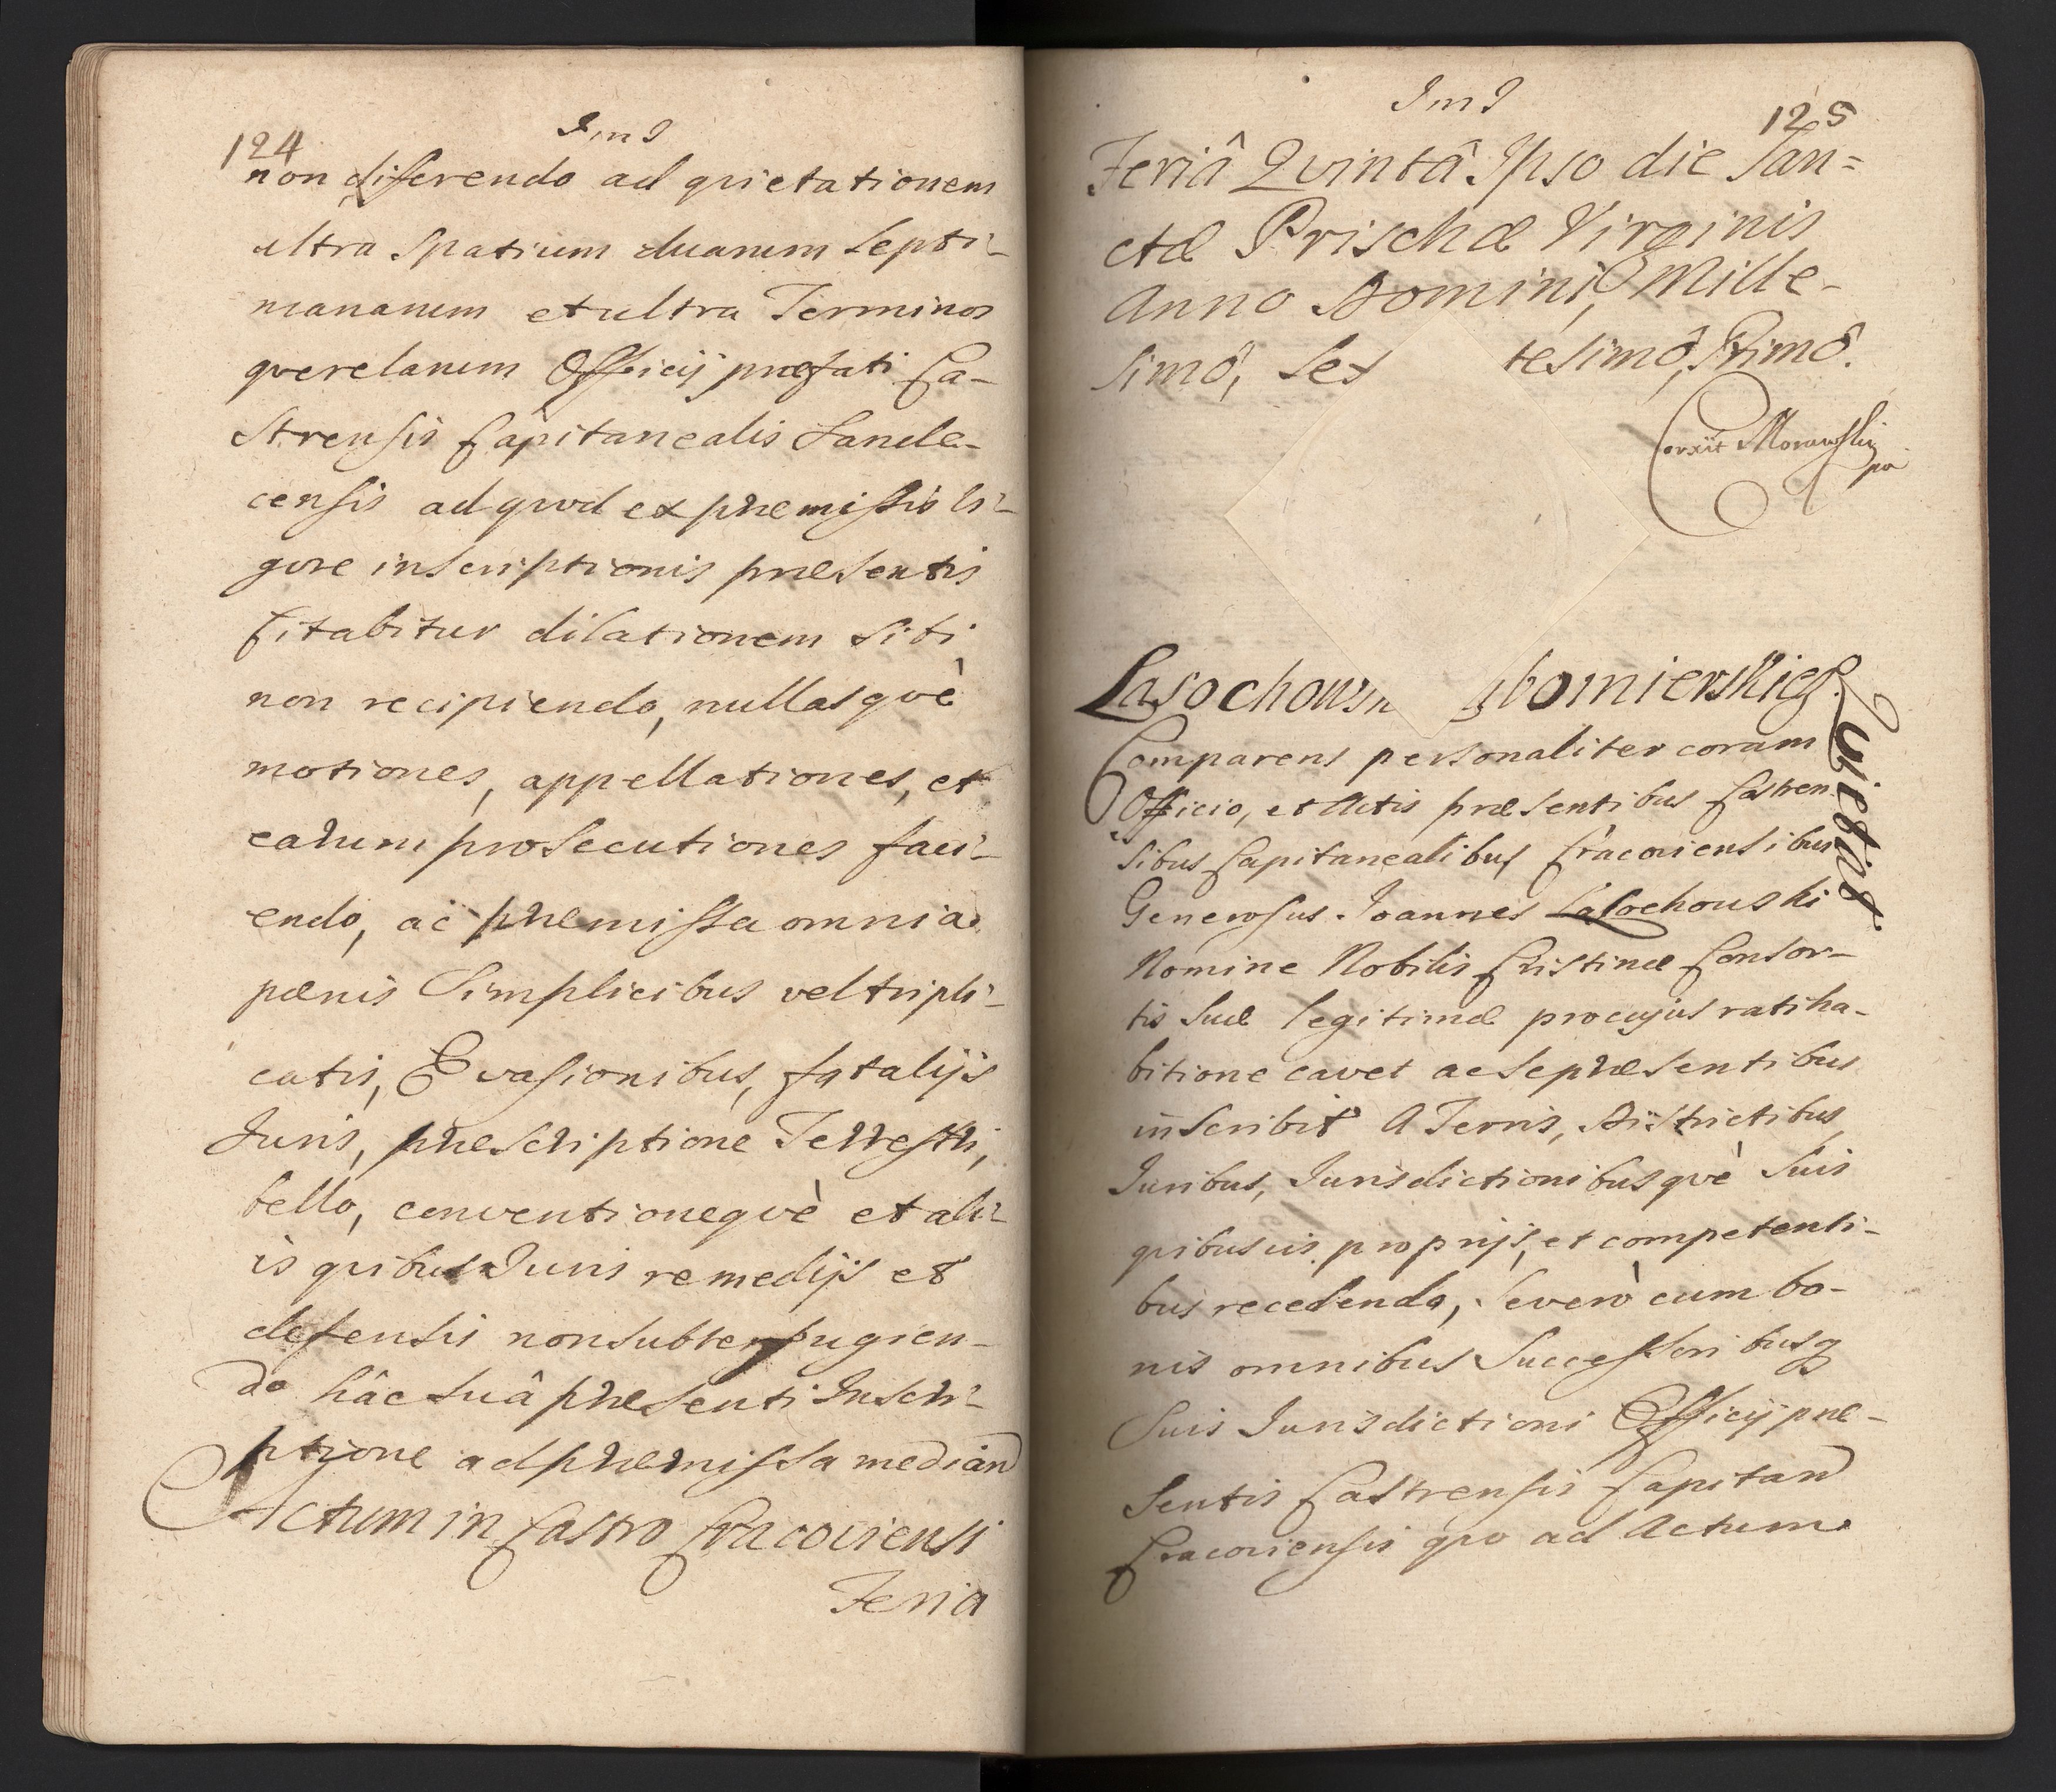 124
JmJ
non diferendo ad qvietationem
ultra Spatium duarum Septi-
manarum et ultra Terminos
qverelarum Officij præfati Ca-
strensis Capitanealis Sande-
censis ad qvod ex præmissis Vi-
gore inscriptionis præsentis
Citabitur dilationem sibi
non recipiendo, nullasqvè
motiones, appellationes, et
earum prosecutiones faci-
endo, ac præmissa omnia
pænis Simplicibus vel tripli-
catis, Evasionibus, fatalijs
Juris, præscriptione Terrestri,
bello, conventioneqvè et ali-
is qvibus Juris remedijs et
defensis non subterfugien-
do hâc suâ præsenti Inscri-
ptione ad præmissa median
Actum in Castro Cracoviensi
Feria
JmJ
125
Feriâ Qvintâ Ipso die San=
ctæ Prischæ Virginis
Anno Domini, Mille-
simô, Sex tesimô, Primô.
Corxit Morawski
pa
Lasochowsk Abomierskieg
Qvietat
Comparens personaliter coram
Officio, et Actis præsentibus Castren
sibus Capitanealibus Cracoviensibus
Generosus Joannes Lasochouski
Nomine Nobilis Cristinæ Consor-
tis Suæ legitimæ pro cujus ratiha-
bitione cavet ac se præsentibus
inscribit A Terris, Districtibus,
Juribus, Jurisdictionibusqvè Suis
qvibusvis proprijs, et competenti-
bus recedendo, Se verò cum bo-
nis omnibus Successoribusq
Suis Jurisdictioni Officij præ-
sentis Castrensis Capitan
Cracoviensis qvo ad Actum